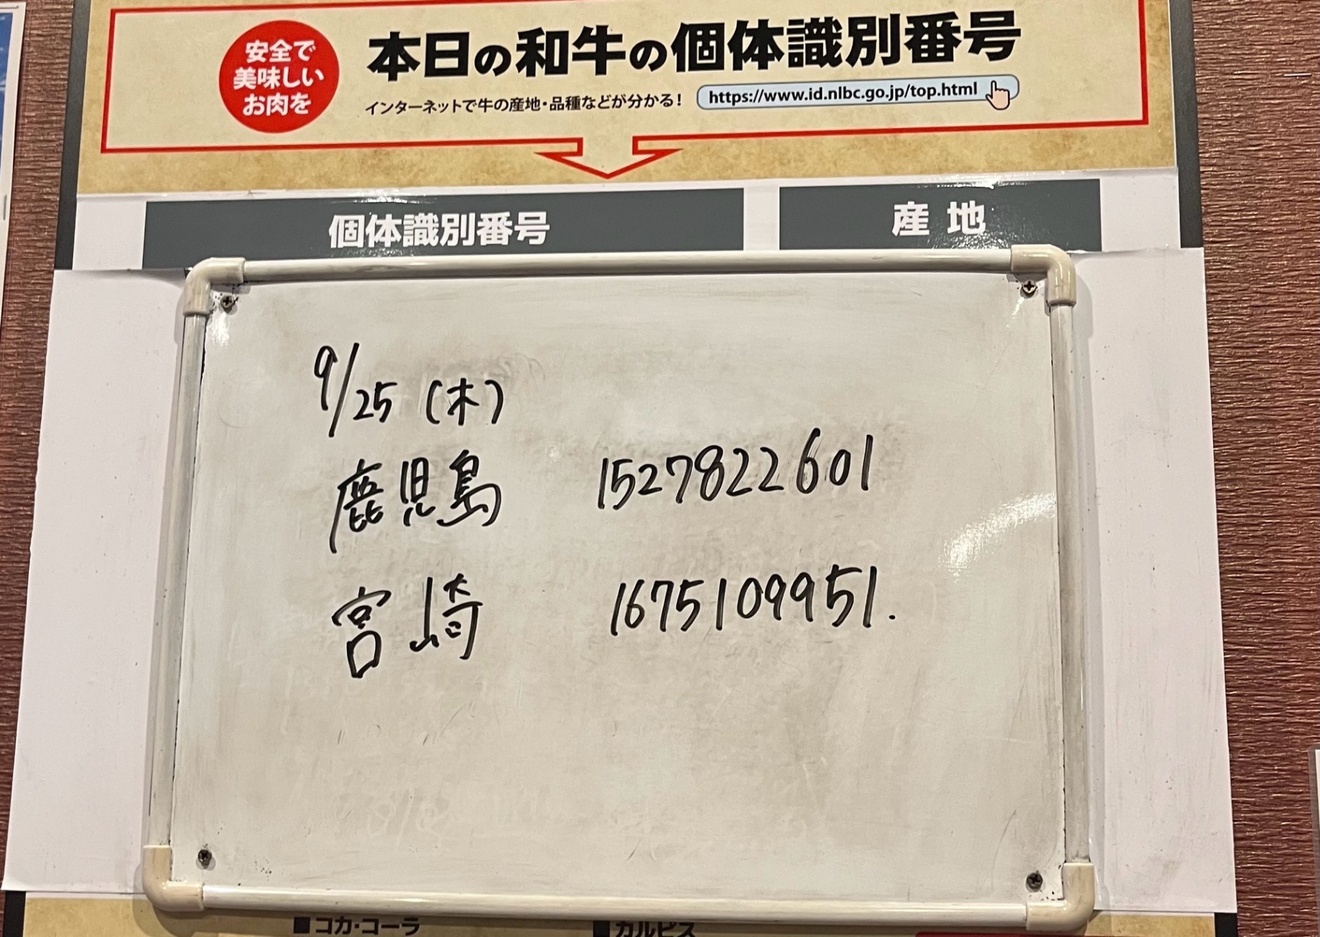 安全で
美味しい
お肉を
本日の和牛の個体識別番号
インターネットで牛の産地・品種などが分かる! https://www.id.nlbc.go.jp/top.html
個体識別番号 産地
9/25 (木)
鹿児島 1527822601
宮崎 1675109951.
■コカ・コーラ ■カルピス